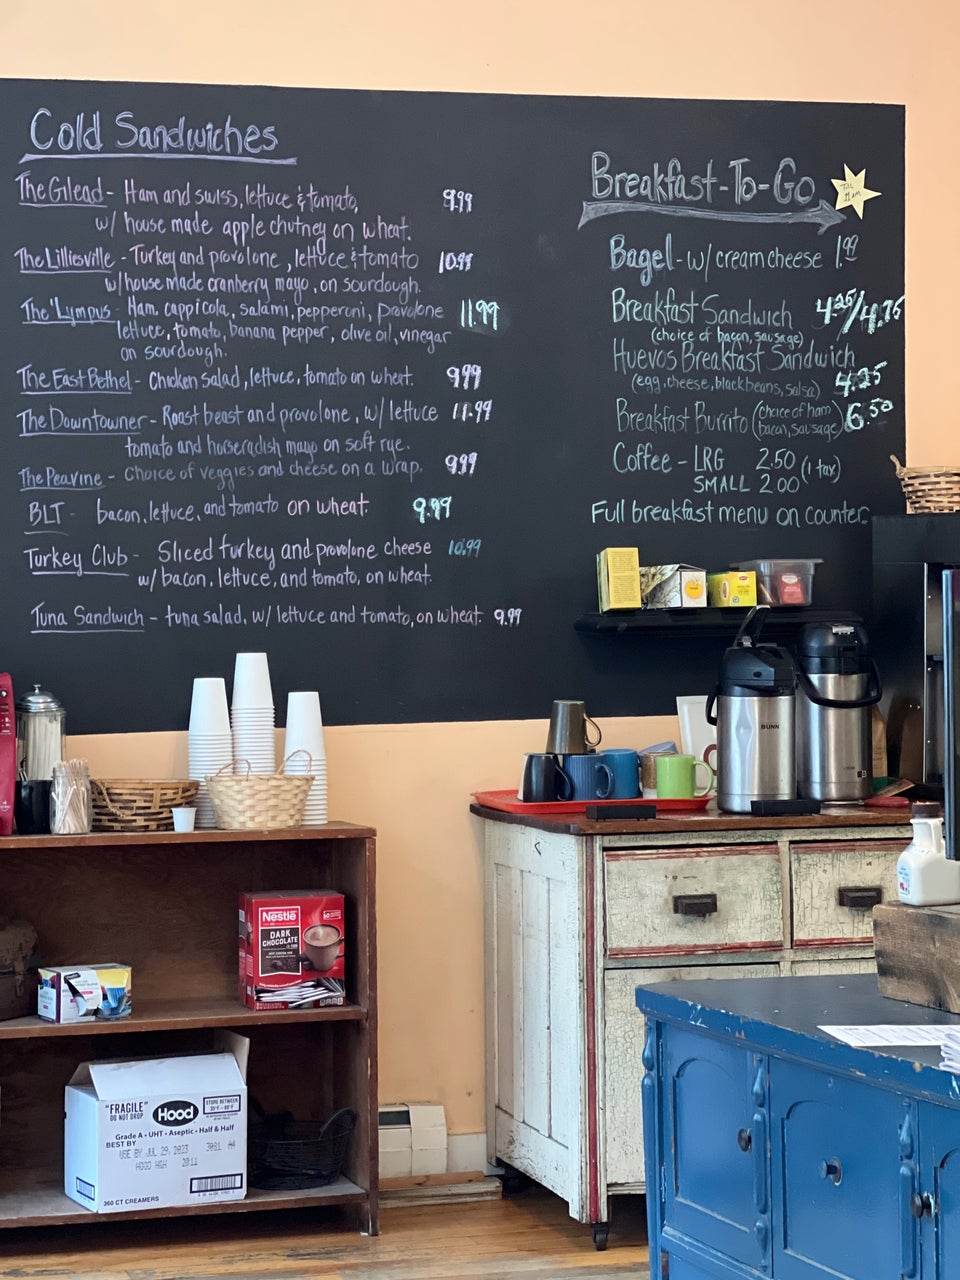 Cold Sandwiches
The Gilead - Ham and swiss, lettuce & tomato, 9.99
w/ house made apple chutney on wheat.
The Lilliesville - Turkey and provolone, lettuce & tomato 10.99
w/house made cranberry mayo, on sourdough.
The 'Lympus - Ham, cappicola, salami, pepperoni, provolone 11.99
lettuce, tomato, banana pepper, olive oil, vinegar
on sourdough.
The East Bethel - Chicken salad, lettuce, tomato on wheat. 9.99
The Downtowner - Roast beast and provolone, w/ lettuce 11.99
tomato and horseradish mayo on soft rye.
The Peavine - choice of veggies and cheese on a wrap. 9.99
BLT - bacon, lettuce, and tomato on wheat. 9.99
Turkey Club - Sliced turkey and provolone cheese 10.99
w/ bacon, lettuce, and tomato, on wheat.
Tuna Sandwich - tuna salad, w/ lettuce and tomato, on wheat. 9.99
Breakfast-To-Go
Till
11am
Bagel - w/ cream cheese 1.99
Breakfast Sandwich 4.25/4.75
(choice of bacon, sausage)
Huevos Breakfast Sandwich
(egg, cheese, black beans, salsa) 4.25
Breakfast Burrito (choice of ham 6.50
bacon, sausage)
Coffee - LRG 2.50 (+ tax)
SMALL 2.00
Full breakfast menu on counter.
BUNN
Nestlé
DARK
CHOCOLATE
"FRAGILE"
DO NOT DROP
Hood
STORE BETWEEN
Grade A • UHT • Aseptic • Half & Half
BEST BY
USE BY JUL 29, 2023
HOOD
20:11
360 CT CREAMERS